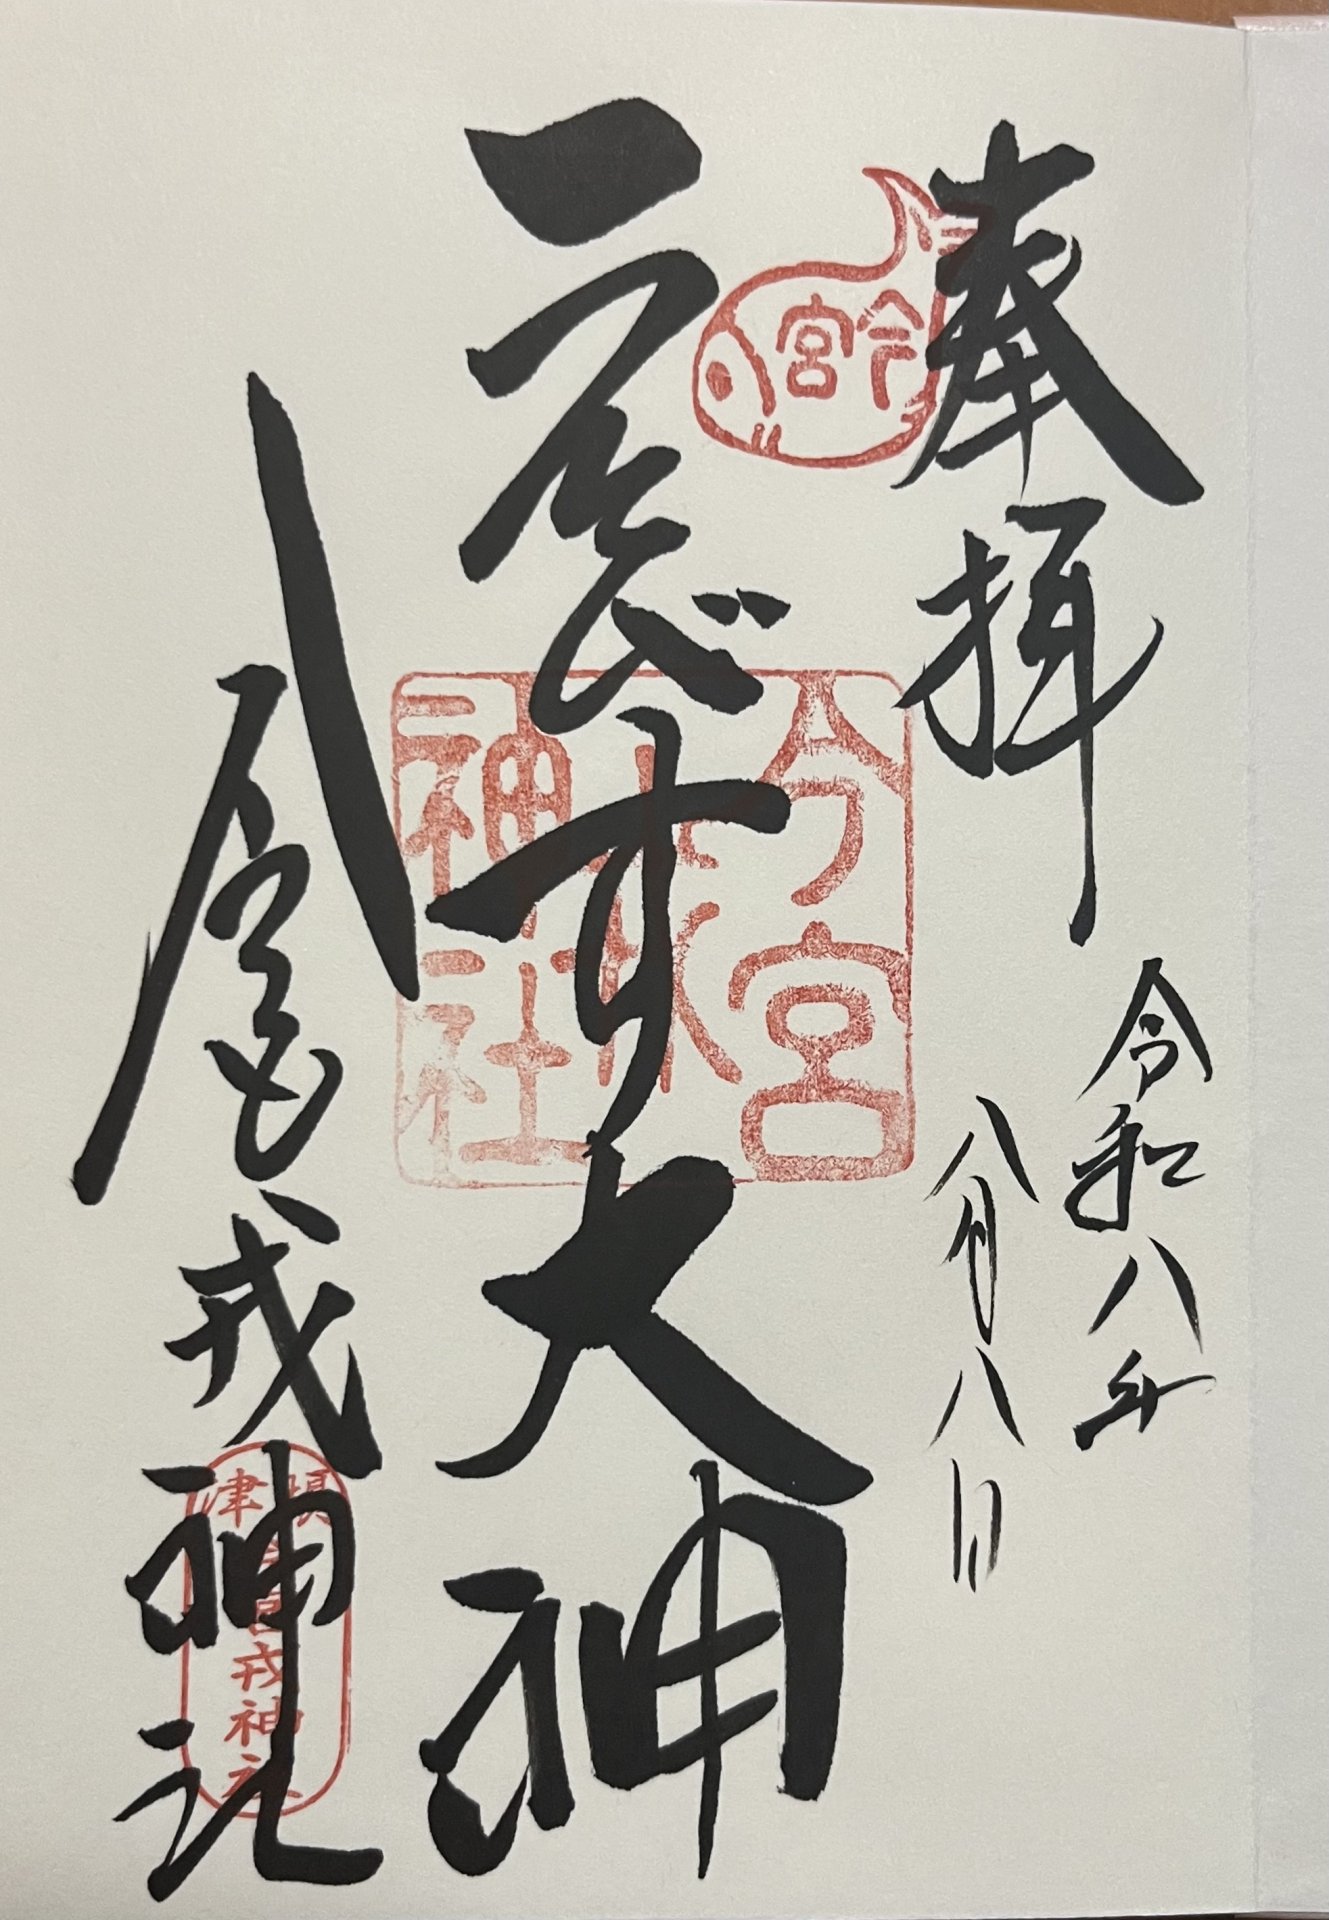 奉拝
令和八年
八月八日
今宮
ゑびす大神
今宮
戎
神社
今宮戎神社
津
今宮戎神社